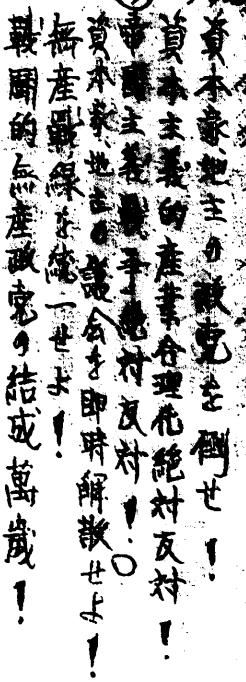 資本家、地主の政党を倒せ！
資本主義的産業合理化絶対反対！
帝國主義戰爭絶対反対！〇
資本家、地主の議会を即時解散せよ！
無産戰線を統一せよ！
戰鬪的無産政党の結成萬歳！